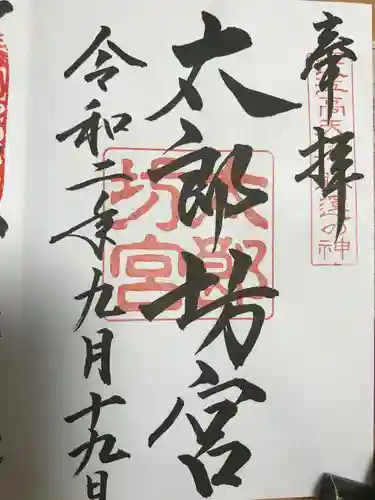 奉拝
太郎坊宮
太郎坊宮
令和二年九月十九日